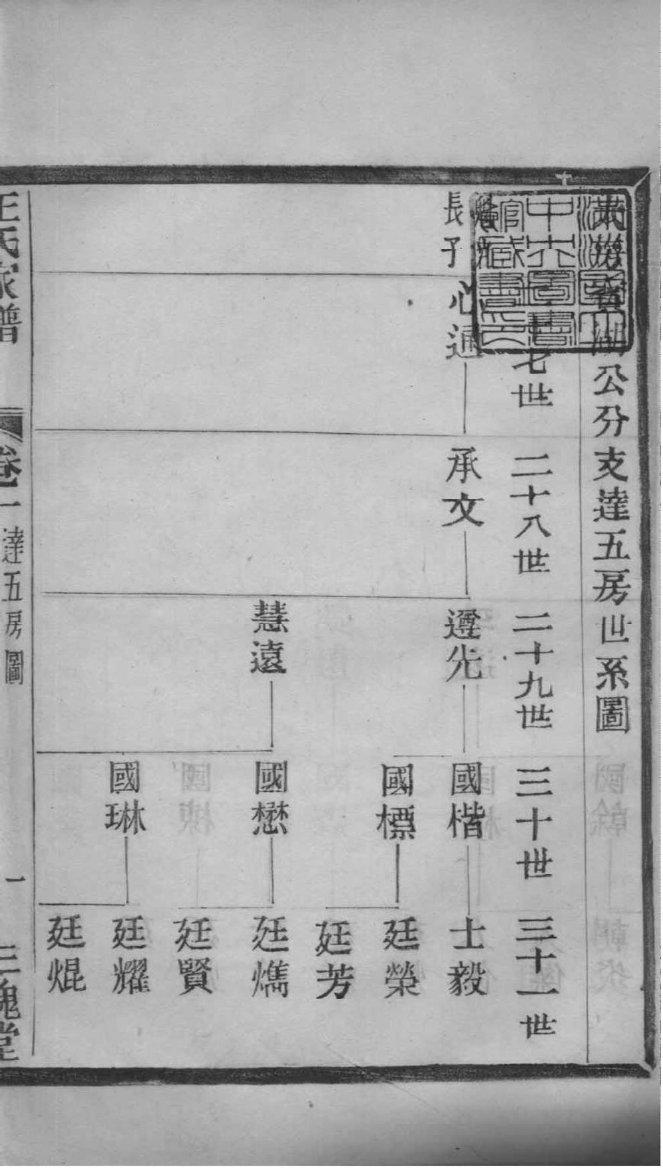 公分支達五房世系圖
七世
二十八世
二十九世
三十世
三十一世
長子心通
承文
遵先
國楷
士毅
國標
廷榮
廷芳
慧遠
國懋
廷燆
廷賢
國琳
廷耀
廷焜
王氏家譜
卷一達五房圖
一
三槐堂